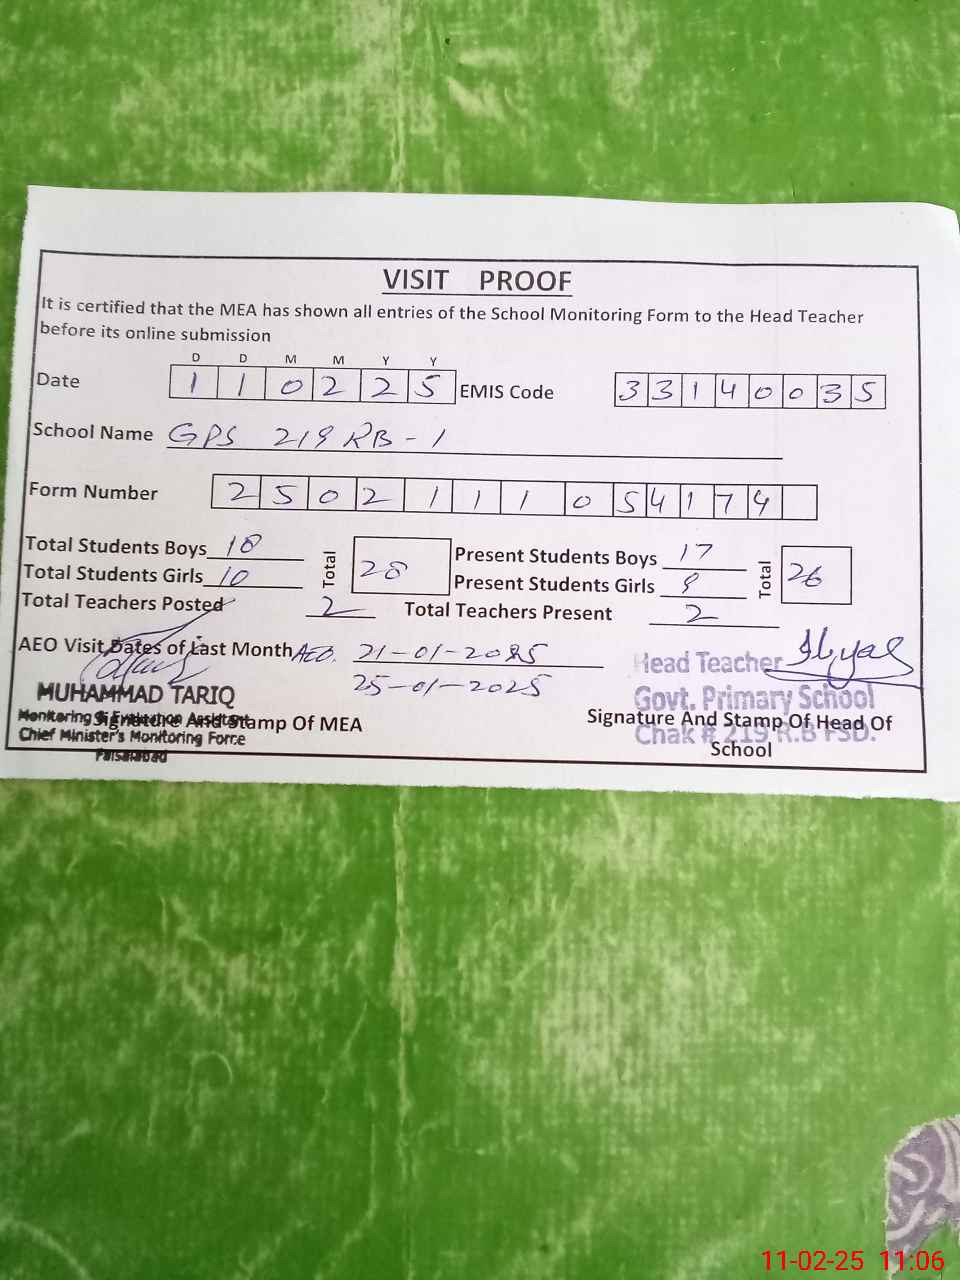 VISIT PROOF
It is certified that the MEA has shown all entries of the School Monitoring Form to the Head Teacher
before its online submission
D D M M Y Y
Date 1 1 0 2 2 5 EMIS Code 3 3 1 4 0 0 3 5
School Name GPS 219 RB - 1
Form Number 2 5 0 2 1 1 1 0 5 4 1 7 4
Total Students Boys 18 Total 28 Present Students Boys 17 Total 26
Total Students Girls 10 Present Students Girls 9
Total Teachers Posted 2 Total Teachers Present 2
AEO Visit Dates of Last Month AEO. 21-01-2025
25-01-2025
Head Teacher
MUHAMMAD TARIQ Govt. Primary School
Monitoring & Evaluation Assistant
Signature And Stamp Of MEA Signature And Stamp Of Head Of
School
Chief Minister's Monitoring Force Chak # 219 R.B FSD.
Faisalabad
11-02-25 11:06